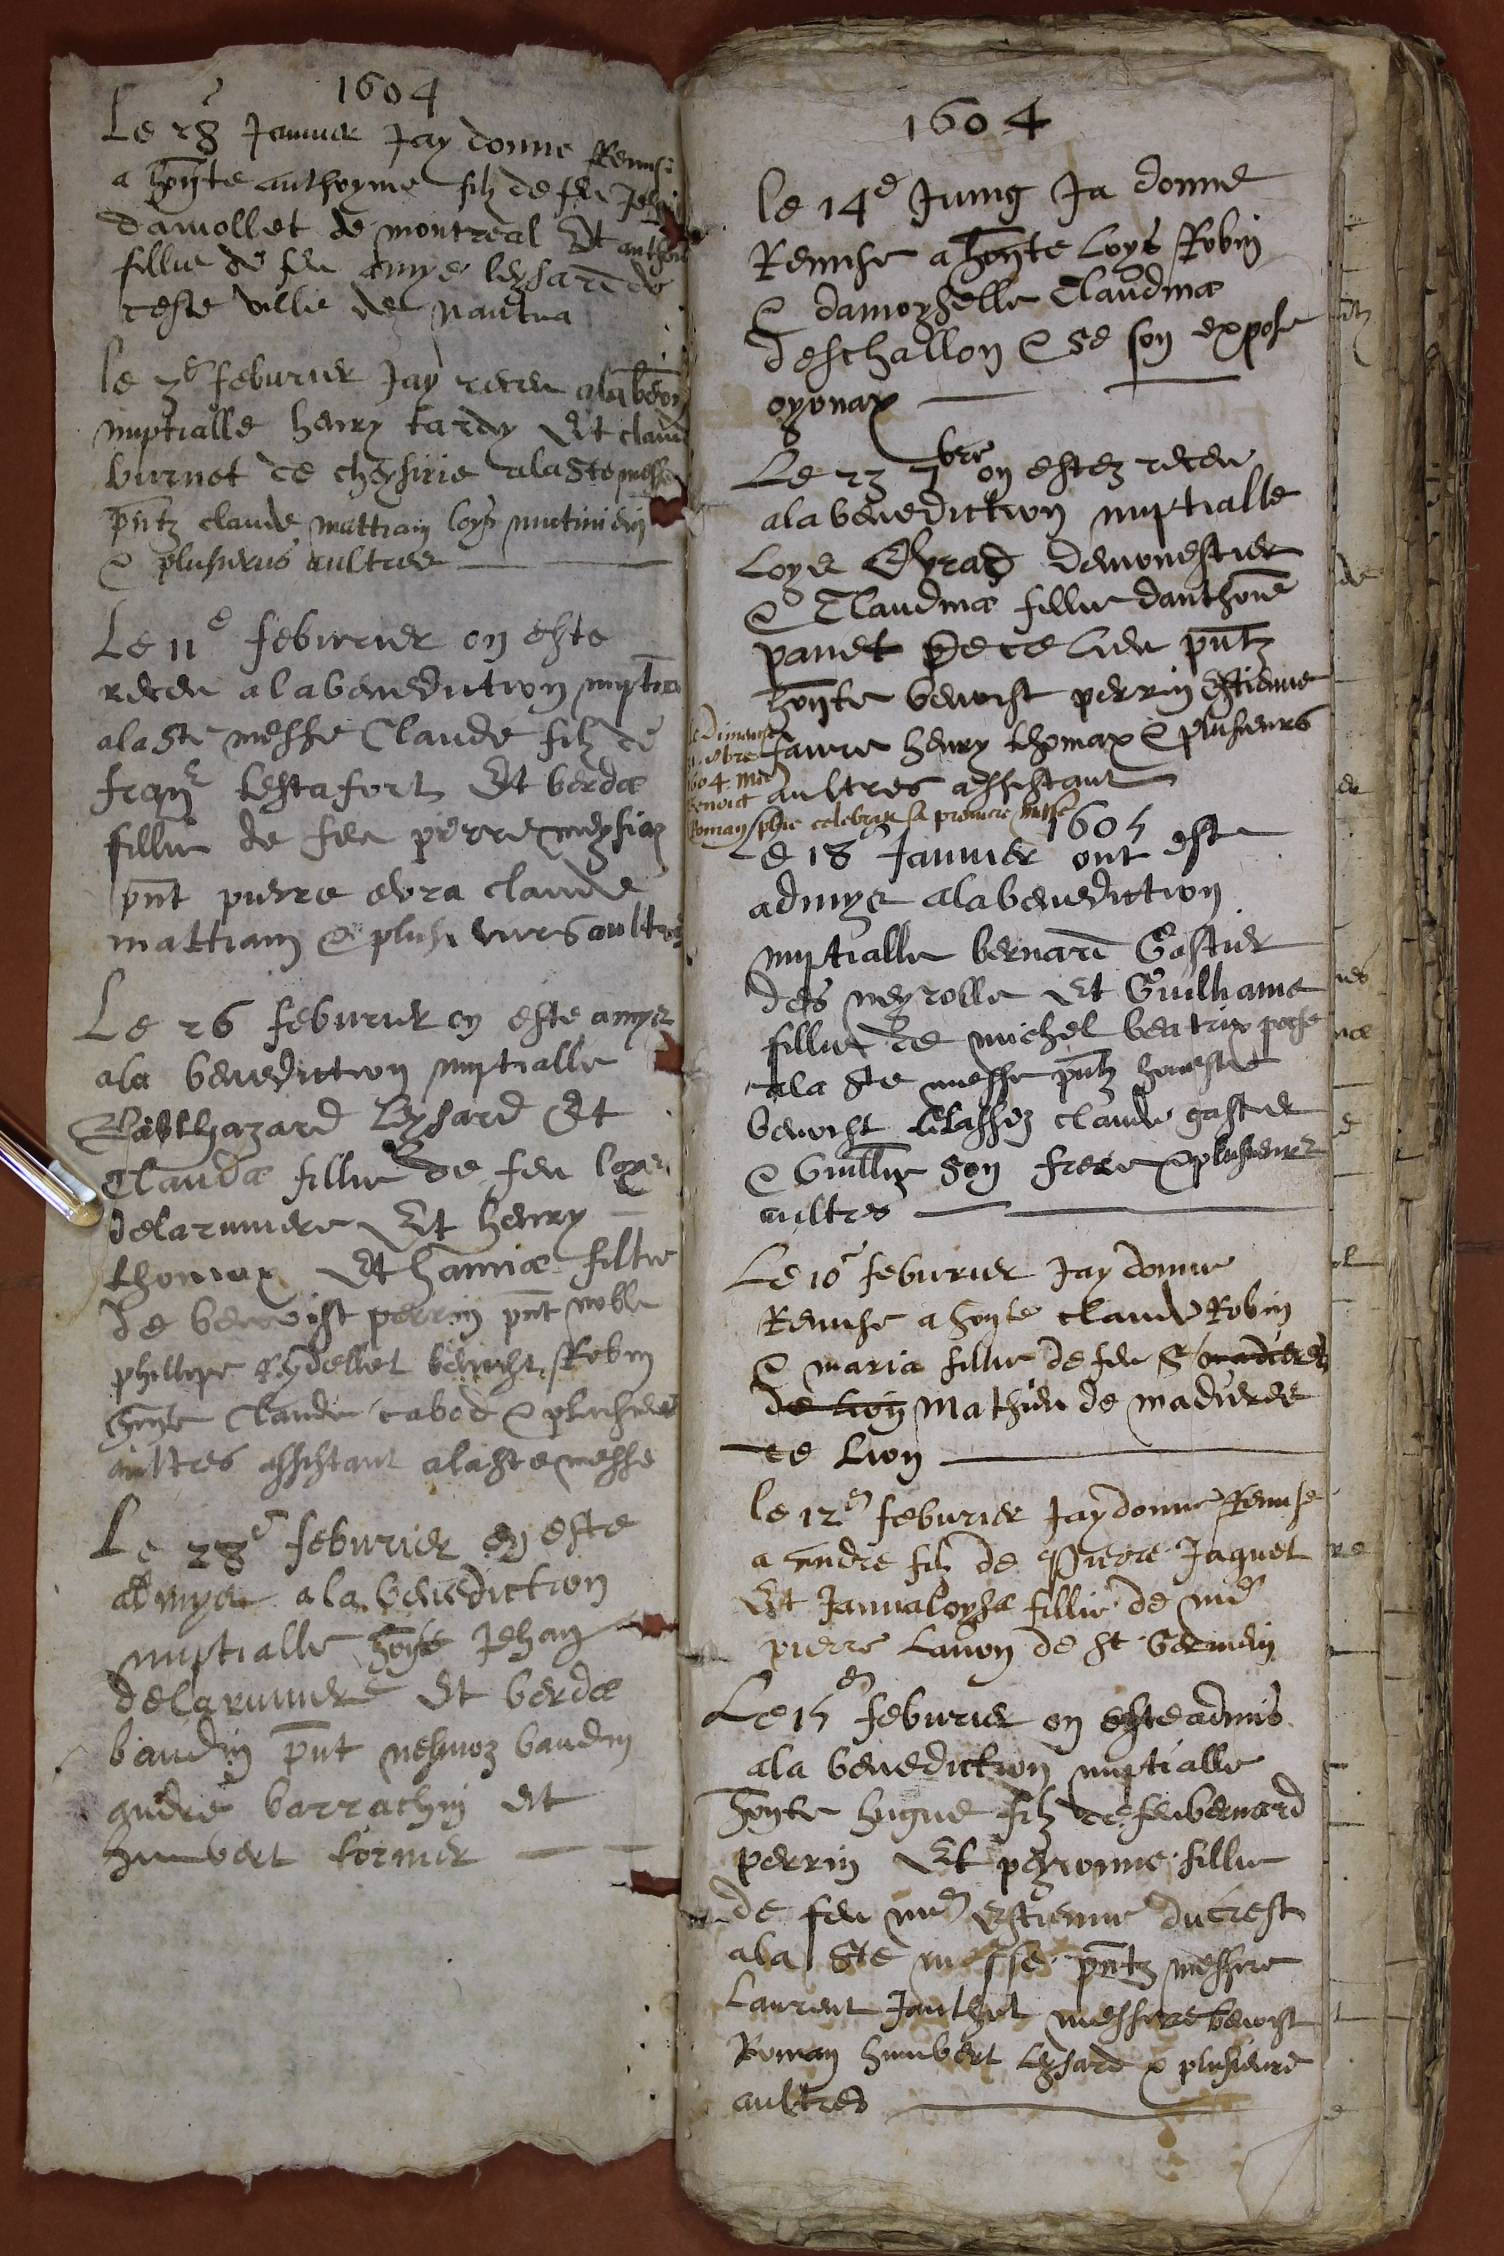 1604
Le 28 Januier Jay donne Remise
a honte anthoyne filz de feu Jehan
damollet de montreal Et anthoi
fillie de feu amye leysard de
ceste ville de nantua
le 3e feburier Jay receu alabeon
nuptialle henry tardy Et claud
burnet de cheysirie alaste messe
pntz claude mattrain loys
& plusieurs aultres
Le 11e feburier on este
receu alabenediction nupt
alaste messe Claude filz de
frans lestafort Et berda
fillie de feu pierre meysiat
pnt pierre evra claude
mattrain & plusieurs aultres
Le 26 feburier on este amys
ala benediction nuptialle
Balthazard leysard Et
Clauda fillie de feu loys
delariuiere Et henry
thomax Et hannia fillie
de benoist perrin pnt noble
phillipe reydellet benoist Robin
honte Claude cabod & plusieurs
aultres assistant alaste messe
Le 28e feburier on este
admys ala benediction
nuptialle honte Jehan
delariuiere Et berda
baudin pnt baudin
andre barrachin Et
humbert tornier
1604
le 14e Juing Ja donne
Remise a honte Loys Robin
& damoyselle Claudina
deschallon & se son expose
oyonax
Le 23 7bre on estez receu
alabenediction nuptialle
Loys Evrad demonestier
& Claudina fillie danthoine
panet de ce lieu pntz
honte benoist perrin Estienne
faure henry thomax & plusieurs
aultres assistant
Dimenche
bre
1604 mre
benoict
Roman pbre celebrat sa premiere messe
1605
Le 18 Januier ont este
admys alabenediction
nuptialle bernard Gastier
des neyrolle Et Guilhame
fillie de michel beatrix
ala ste messe pntz honeste
benoist claude gastier
& Guillme son frere & plusieurs
aultres
Le 10e feburier Jay donne
Remise a honte claude Robin
& maria fillie de feu Sr madieres
de lion Mathieu de madieres
de Lion
le 12e feburier Jay donne Remise
a andre filz de Pierre Jaquet
Et Janaloysa fillie de me
pierre Lanon de st Germein
Le 15e feburier on este admis
ala benediction nuptialle
honte hugue filz de feu bernard
perrin Et peronne fillie
de feu me Estienne ducrest
ala ste messe pntz messire
Laurent Janthet messire benoist
Roman humbert leysard & plusieurs
aultres